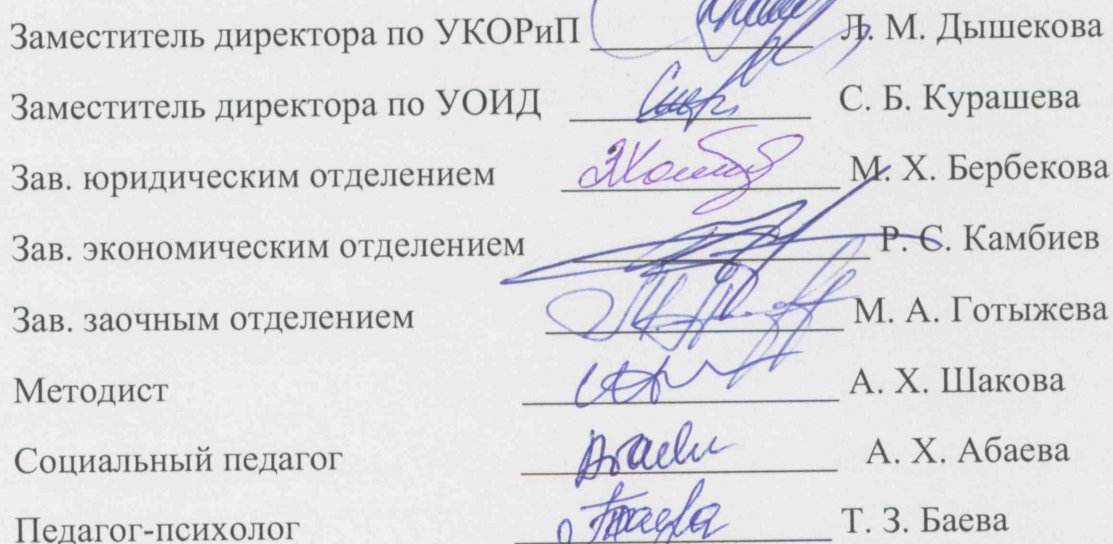 Заместитель директора по УКОРиП Л. М. Дышекова
Заместитель директора по УОИД С. Б. Курашева
Зав. юридическим отделением М. Х. Бербекова
Зав. экономическим отделением Р. С. Камбиев
Зав. заочным отделением М. А. Готыжева
Методист А. Х. Шакова
Социальный педагог А. Х. Абаева
Педагог-психолог Т. З. Баева